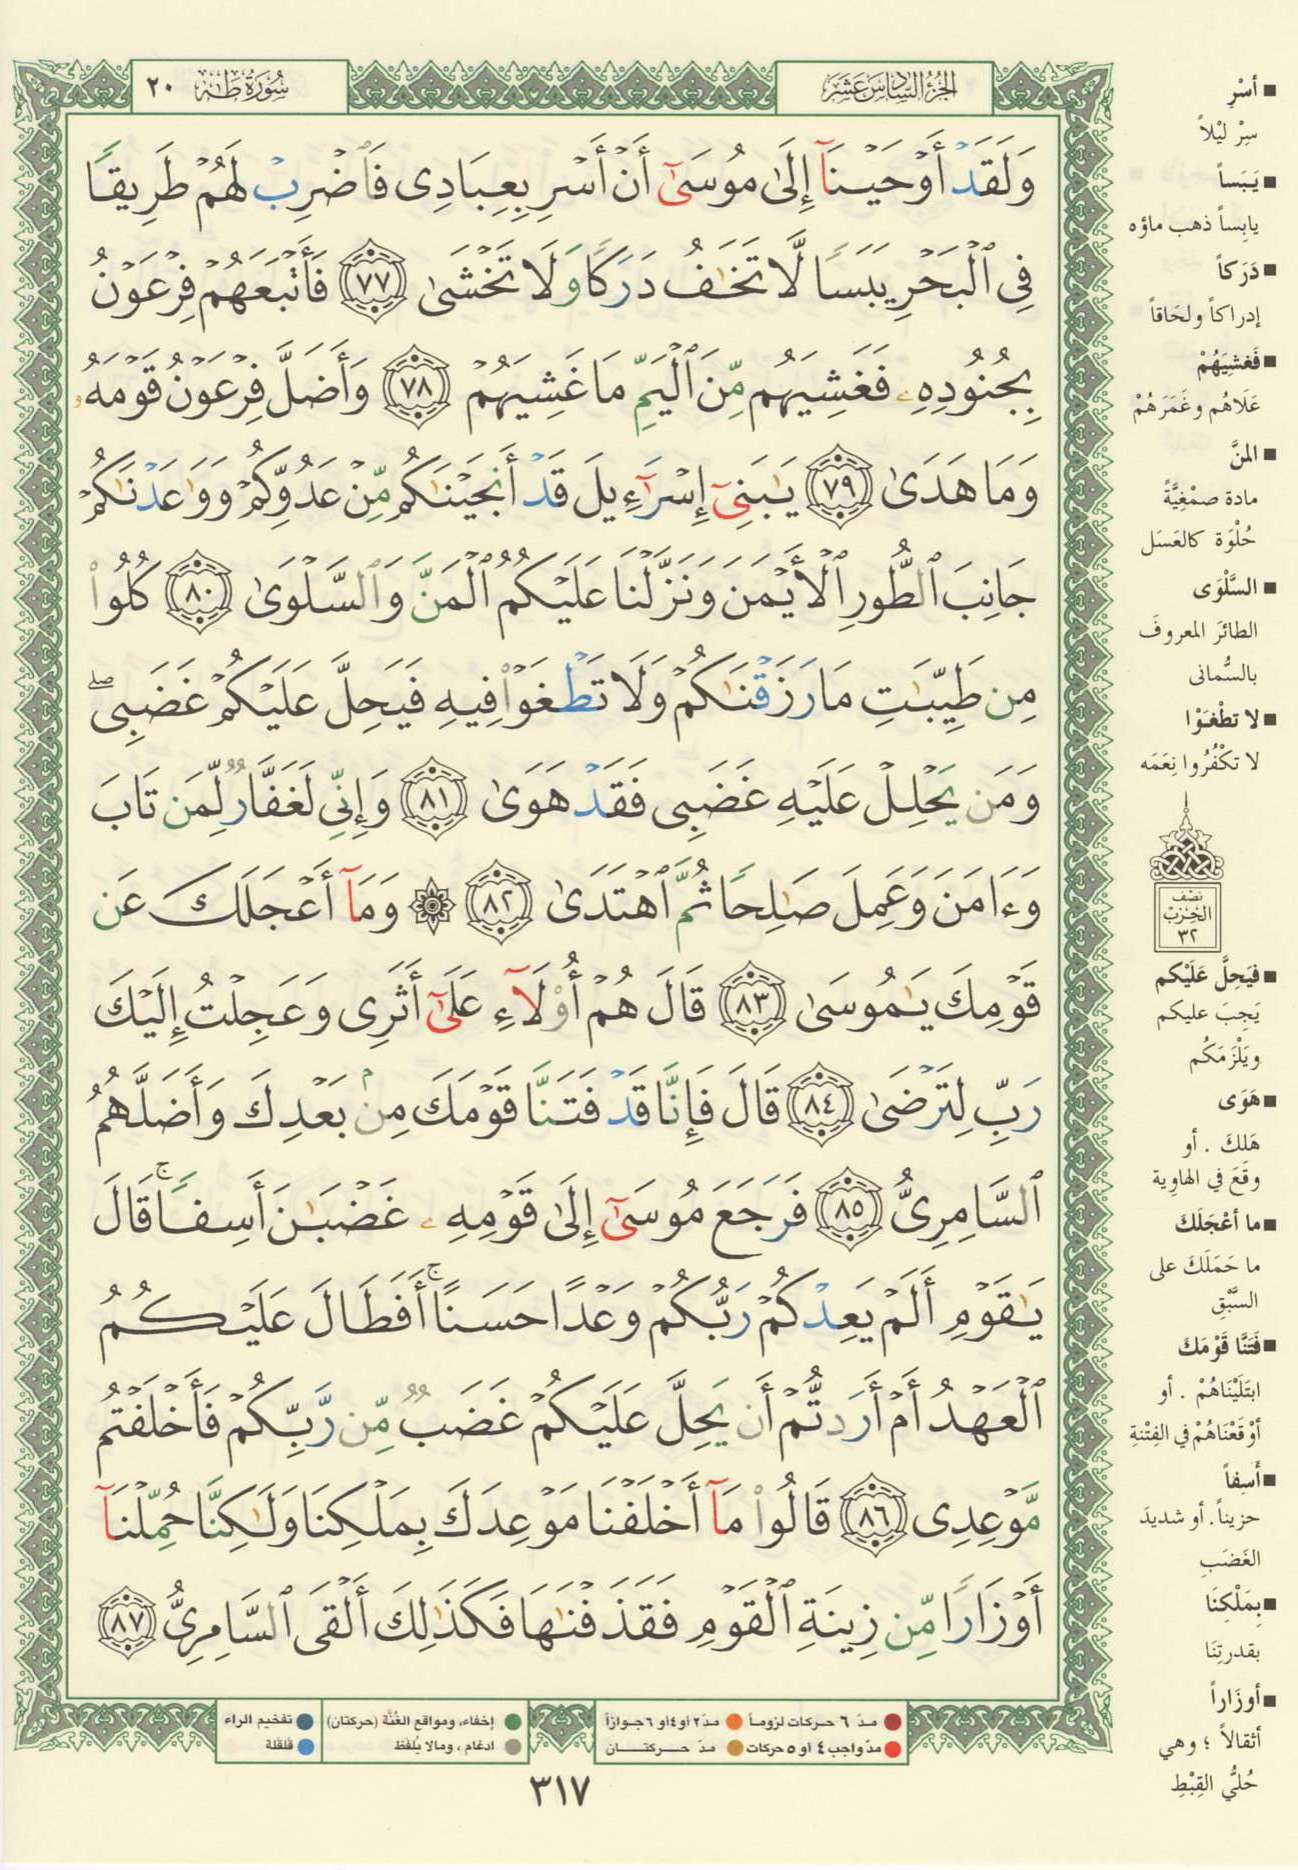 سُورَةُ طه ٢٠
الجُزْءُ السَّادِسَ عَشَرَ
وَلَقَدْ أَوْحَيْنَآ إِلَىٰ مُوسَىٰٓ أَنْ أَسْرِ بِعِبَادِى فَٱضْرِبْ لَهُمْ طَرِيقًا
فِى ٱلْبَحْرِ يَبَسًا لَّا تَخَٰفُ دَرَكًا وَلَا تَخْشَىٰ ٧٧ فَأَتْبَعَهُمْ فِرْعَوْنُ
بِجُنُودِهِۦ فَغَشِيَهُم مِّنَ ٱلْيَمِّ مَا غَشِيَهُمْ ٧٨ وَأَضَلَّ فِرْعَوْنُ قَوْمَهُۥ
وَمَا هَدَىٰ ٧٩ يَٰبَنِىٓ إِسْرَٰٓءِيلَ قَدْ أَنجَيْنَٰكُم مِّنْ عَدُوِّكُمْ وَوَٰعَدْنَٰكُمْ
جَانِبَ ٱلطُّورِ ٱلْأَيْمَنَ وَنَزَّلْنَا عَلَيْكُمُ ٱلْمَنَّ وَٱلسَّلْوَىٰ ٨٠ كُلُوا۟
مِن طَيِّبَٰتِ مَا رَزَقْنَٰكُمْ وَلَا تَطْغَوْا۟ فِيهِ فَيَحِلَّ عَلَيْكُمْ غَضَبِى ۖ
وَمَن يَحْلِلْ عَلَيْهِ غَضَبِى فَقَدْ هَوَىٰ ٨١ وَإِنِّى لَغَفَّارٌ لِّمَن تَابَ
وَءَامَنَ وَعَمِلَ صَٰلِحًا ثُمَّ ٱهْتَدَىٰ ٨٢ ۞ وَمَآ أَعْجَلَكَ عَن
قَوْمِكَ يَٰمُوسَىٰ ٨٣ قَالَ هُمْ أُو۟لَآءِ عَلَىٰٓ أَثَرِى وَعَجِلْتُ إِلَيْكَ
رَبِّ لِتَرْضَىٰ ٨٤ قَالَ فَإِنَّا قَدْ فَتَنَّا قَوْمَكَ مِنۢ بَعْدِكَ وَأَضَلَّهُمُ
ٱلسَّامِرِىُّ ٨٥ فَرَجَعَ مُوسَىٰٓ إِلَىٰ قَوْمِهِۦ غَضْبَٰنَ أَسِفًا ۚ قَالَ
يَٰقَوْمِ أَلَمْ يَعِدْكُمْ رَبُّكُمْ وَعْدًا حَسَنًا ۚ أَفَطَالَ عَلَيْكُمُ
ٱلْعَهْدُ أَمْ أَرَدتُّمْ أَن يَحِلَّ عَلَيْكُمْ غَضَبٌ مِّن رَّبِّكُمْ فَأَخْلَفْتُم
مَّوْعِدِى ٨٦ قَالُوا۟ مَآ أَخْلَفْنَا مَوْعِدَكَ بِمَلْكِنَا وَلَٰكِنَّا حُمِّلْنَآ
أَوْزَارًا مِّن زِينَةِ ٱلْقَوْمِ فَقَذَفْنَٰهَا فَكَذَٰلِكَ أَلْقَى ٱلسَّامِرِىُّ ٨٧
■ أسْرِ
سِرْ ليْلاً
■ يَبَساً
يابِساً ذهب ماؤه
■ دَرَكاً
إدراكاً ولحَاقاً
■ فَغشِيَهُمْ
عَلَاهُم وغَمَرَهُمْ
■ المنَّ
مادة صمْغِيَّةً
حُلْوَة كالعَسَل
■ السَّلْوَى
الطائرَ المعروفَ
بالسُّمانى
■ لا تطْغَوْا
لا تكْفُرُوا نِعَمَه
نصْف
الحِزْبْ
٣٢
■ فيَحِلَّ عَلَيْكم
يَجِبَ عليكم
ويَلْزَمَكُم
■ هَوَى
هَلكَ . أو
وقَعَ في الهاوِية
■ ما أعْجَلَكَ
ما حَمَلَكَ على
السَّبْقِ
■ فَتَنَّا قَوْمَكَ
ابتَلَيْنَاهُمْ . أو
أوْقَعْنَاهُمْ في الفِتْنةِ
■ أسِفاً
حزيناً . أو شديدَ
الغَضَبِ
■ بِمَلْكِنَا
بقدرتِنَا
■ أوزَاراً
أثقالاً ؛ وهي
حُليُّ القِبْطِ
مدّ ٦ حركات لزوماً مدّ ٢ أو ٤ أو ٦ جوازاً
مدّ واجب ٤ أو ٥ حركات مدّ حركتان
إخفاء، ومواقع الغُنَّة (حركتان) تفخيم الراء
ادغام ، وما لا يُلفَظ قلقلة
٣١٧